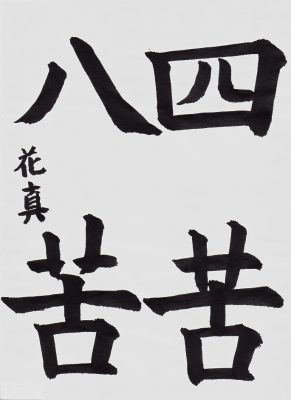 四苦
八苦
花真